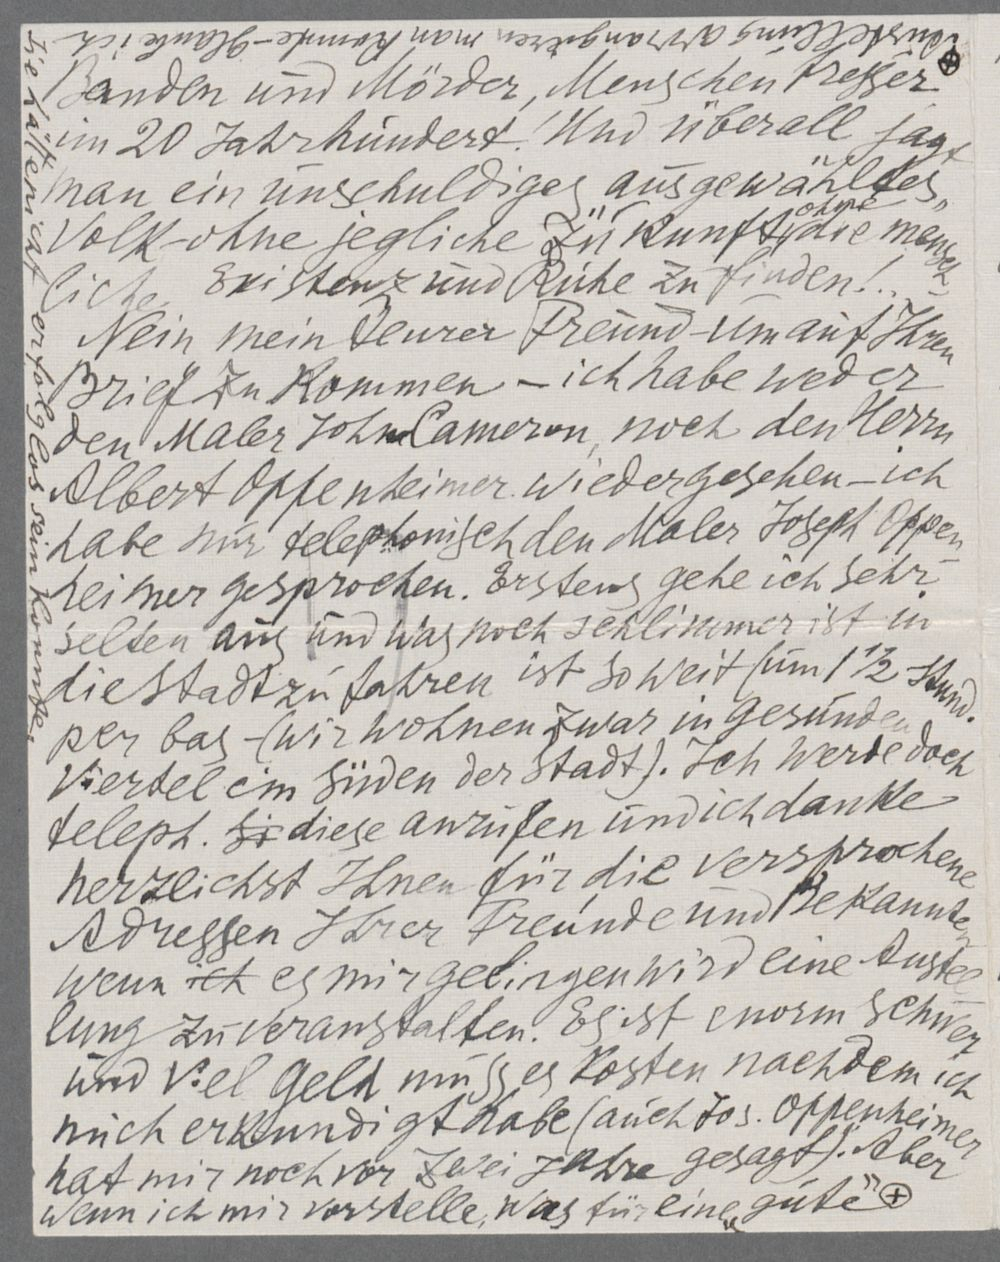 Banden und Mörder, Menschen fresser
im 20 Jahrhundert! Und überall jagt
man ein unschuldiges ausgewähltes
Volk-ohne jegliche Zukunft, ohne die mensch-
liche Existenz und Ruhe zu finden!..
Nein mein teurer Freund-um auf Ihren
Brief zu kommen – ich habe weder
den Maler John Cameron, noch den Herrn
Albert Oppenheimer wiedergesehen – ich
habe nur telephonisch den Maler Joseph Oppen-
heimer gesprochen. Erstens gehe ich sehr
selten aus und was noch schlimmer ist in
die Stadt zu fahren ist so weit (um 1 1/2 Stund.
per bas – (wir wohnen zwar in gesunden
Viertel im Süden der Stadt). Ich werde doch
teleph. Si diese anrufen und ich danke
herzlichst Ihnen für die versprochene
Adressen Ihrer Freunde und Bekannten
wenn ich es mir gelingen wird eine Austel
lung zu veranstalten. Es ist enorm schwer
und viel Geld muss es kosten nachdem ich
mich erkundigt habe (auch Jos. Oppenheimer
hat mir noch vor zwei Jahre gesagt). Aber
wenn ich mir vorstelle, was für eine „gute" ⊕
⊕ Austellung arrangieren man konnte-glaube ich
sie hätte nicht erfolglos sein konnte.